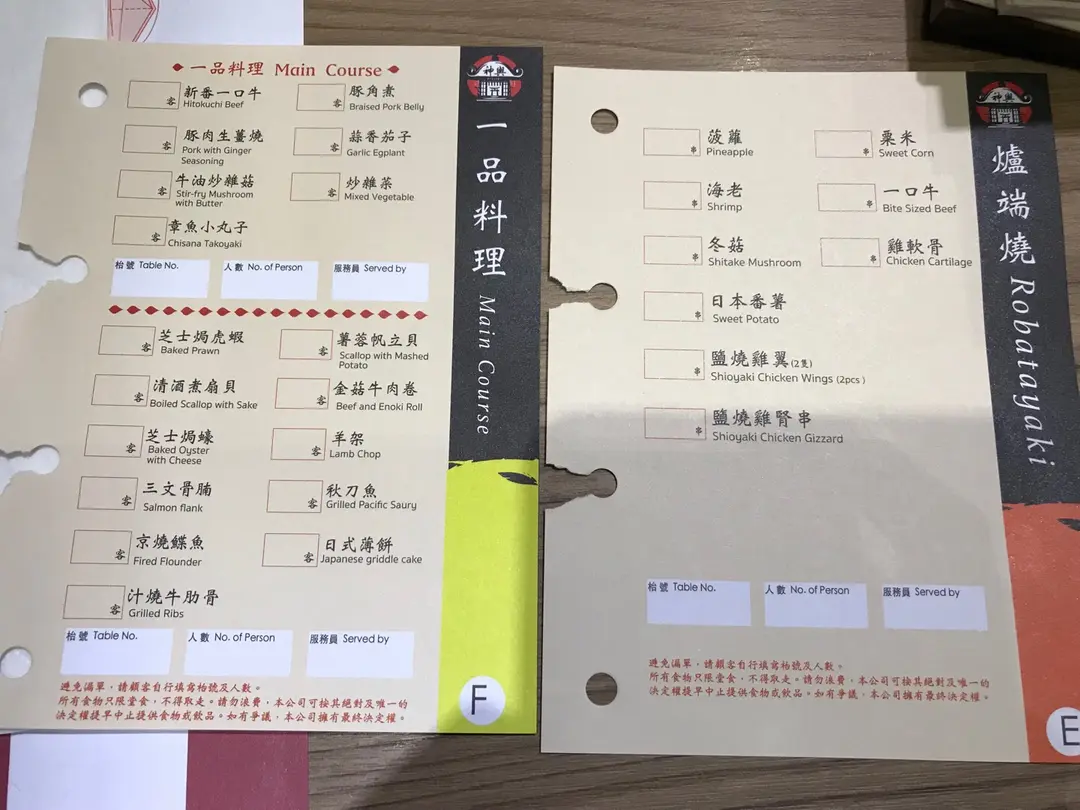 一品料理 Main Course
客 新番一口牛
Hitokuchi Beef
客 豚角煮
Braised Pork Belly
客 豚肉生薑燒
Pork with Ginger
Seasoning
客 蒜香茄子
Garlic Egplant
客 牛油炒雜菇
Stir-fry Mushroom
with Butter
客 炒雜菜
Mixed Vegetable
客 章魚小丸子
Chisana Takoyaki
枱號 Table No.
人數 No. of Person
服務員 Served by
客 芝士焗虎蝦
Baked Prawn
客 薯蓉帆立貝
Scallop with Mashed
Potato
客 清酒煮扇貝
Boiled Scallop with Sake
客 金菇牛肉卷
Beef and Enoki Roll
客 芝士焗蠔
Baked Oyster
with Cheese
客 羊架
Lamb Chop
客 三文骨腩
Salmon flank
客 秋刀魚
Grilled Pacific Saury
客 京燒鰈魚
Fired Flounder
客 日式薄餅
Japanese griddle cake
客 汁燒牛肋骨
Grilled Ribs
枱號 Table No.
人數 No. of Person
服務員 Served by
避免漏單，請顧客自行填寫枱號及人數。
所有食物只限堂食，不得取走。請勿浪費，本公司可按其絕對及唯一的
決定權提早中止提供食物或飲品。如有爭議，本公司擁有最終決定權。
神輿
一品料理 Main Course
F
串 菠蘿
Pineapple
串 粟米
Sweet Corn
串 海老
Shrimp
串 一口牛
Bite Sized Beef
串 冬菇
Shitake Mushroom
串 雞軟骨
Chicken Cartilage
串 日本番薯
Sweet Potato
串 鹽燒雞翼(2隻)
Shioyaki Chicken Wings (2pcs )
串 鹽燒雞腎串
Shioyaki Chicken Gizzard
枱號 Table No.
人數 No. of Person
服務員 Served by
避免漏單，請顧客自行填寫枱號及人數。
所有食物只限堂食，不得取走。請勿浪費，本公司可按其絕對及唯一的
決定權提早中止提供食物或飲品。如有爭議，本公司擁有最終決定權。
神輿
爐端燒 Robatayaki
E